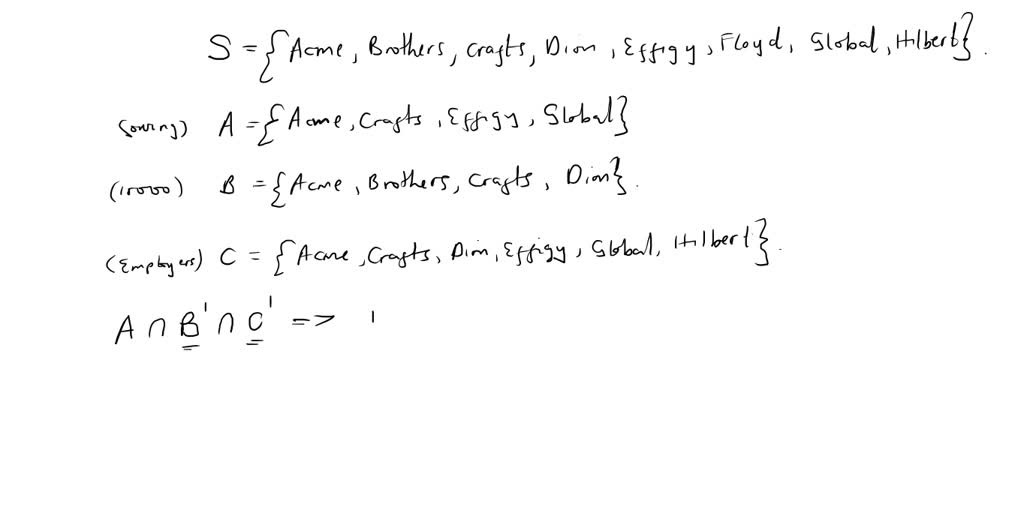 S = {Acme, Brothers, Crafts, Dion, Effigy, Floyd, Global, Hilbert}.
(owing) A = {Acme, Crafts, Effigy, Global}
(10000) B = {Acme, Brothers, Crafts, Dion}.
(Employees) C = {Acme, Crafts, Dion, Effigy, Global, Hilbert}.
A ∩ B' ∩ C' =>